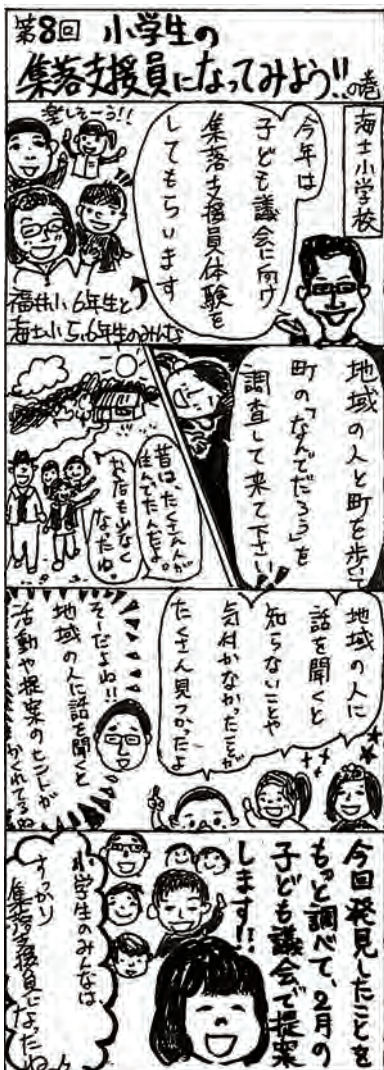 第8回 小学生の
集落支援員になってみよう!!の巻
海士小学校
今年は
子ども議会に向け
集落支援員体験を
してもらいます
楽しそーう!!
福井小6年生と
海士小5,6年生のみんな
地域の人と町を歩いて
町の「なんでだろう」を
調査して来て下さい
昔は、たくさん人が
住んでたんだよ。
お店も少なく
なったね。
地域の人に
話を聞くと
知らないことや
気付かなかったことが
たくさん見つかったよ
そーだよね!!
地域の人に話を聞くと
活動や提案のヒントが
かくれてるね
今回発見したことを
もっと調べて、2月の
子ども議会で提案
します!!
小学生のみんなは
すっかり
集落支援員になったね